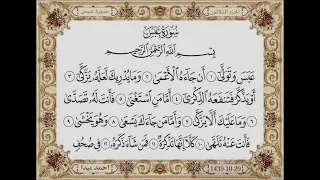 الجزء الثلاثون
سورة عبس
سُورَةُ عَبَسَ
بِسْمِ اللَّهِ الرَّحْمَٰنِ الرَّحِيمِ
عَبَسَ وَتَوَلَّىٰ ١ أَن جَاءَهُ الْأَعْمَىٰ ٢ وَمَا يُدْرِيكَ لَعَلَّهُ يَزَّكَّىٰ ٣
أَوْ يَذَّكَّرُ فَتَنفَعَهُ الذِّكْرَىٰ ٤ أَمَّا مَنِ اسْتَغْنَىٰ ٥ فَأَنتَ لَهُ تَصَدَّىٰ
٦ وَمَا عَلَيْكَ أَلَّا يَزَّكَّىٰ ٧ وَأَمَّا مَن جَاءَكَ يَسْعَىٰ ٨ وَهُوَ يَخْشَىٰ ٩
فَأَنتَ عَنْهُ تَلَهَّىٰ ١٠ كَلَّا إِنَّهَا تَذْكِرَةٌ ١١ فَمَن شَاءَ ذَكَرَهُ ١٢ فِي صُحُفٍ
1439-10-29